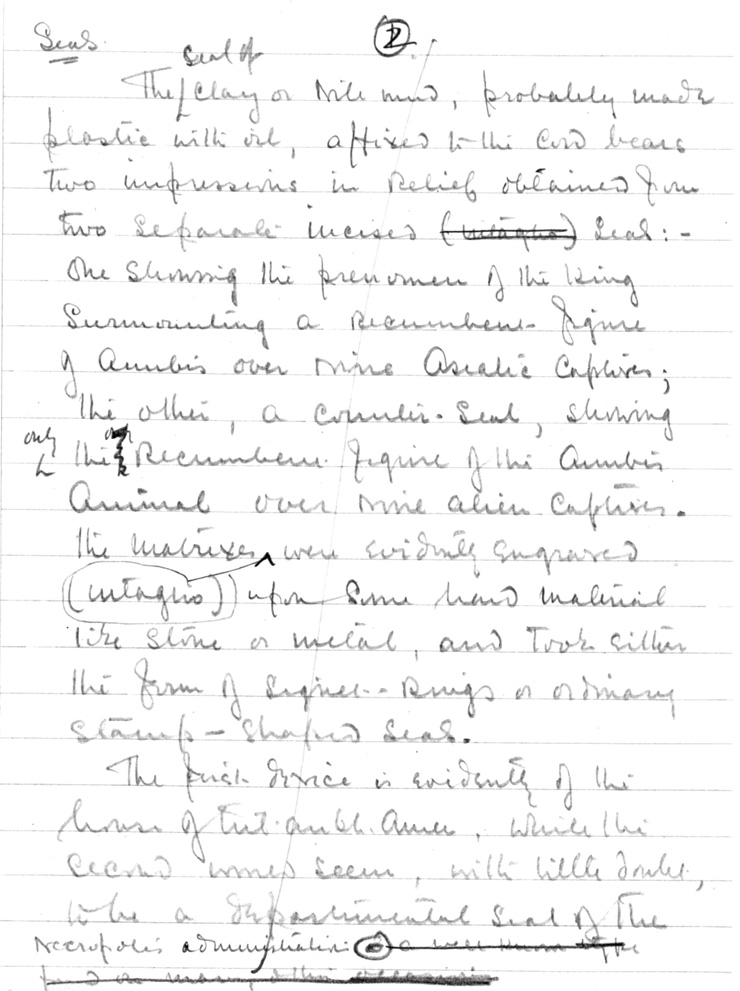 Seals.
2.
Seal of
The clay or Nile mud, probably made
plastic with oil, affixed to the cord bears
two impressions in relief obtained from
two separate incised (intaglio) seals:-
One showing the prenomen of the King
surmounting a recumbent figure
of Anubis over nine Asiatic captives;
the other, a counter-seal, showing
only the recumbent figure of the Anubis
Animal over nine alien captives.
The matrixes were evidently engraved
(intaglio) upon some hard material
like stone or metal, and took either
the form of signet-rings or ordinary
stamp-shaped seals.
The first device is evidently of the
house of Tut.ankh.Amen, while the
second would seem, with little doubt,
to be a departmental seal of the
Necropolis administration a well known type
on many other occasions